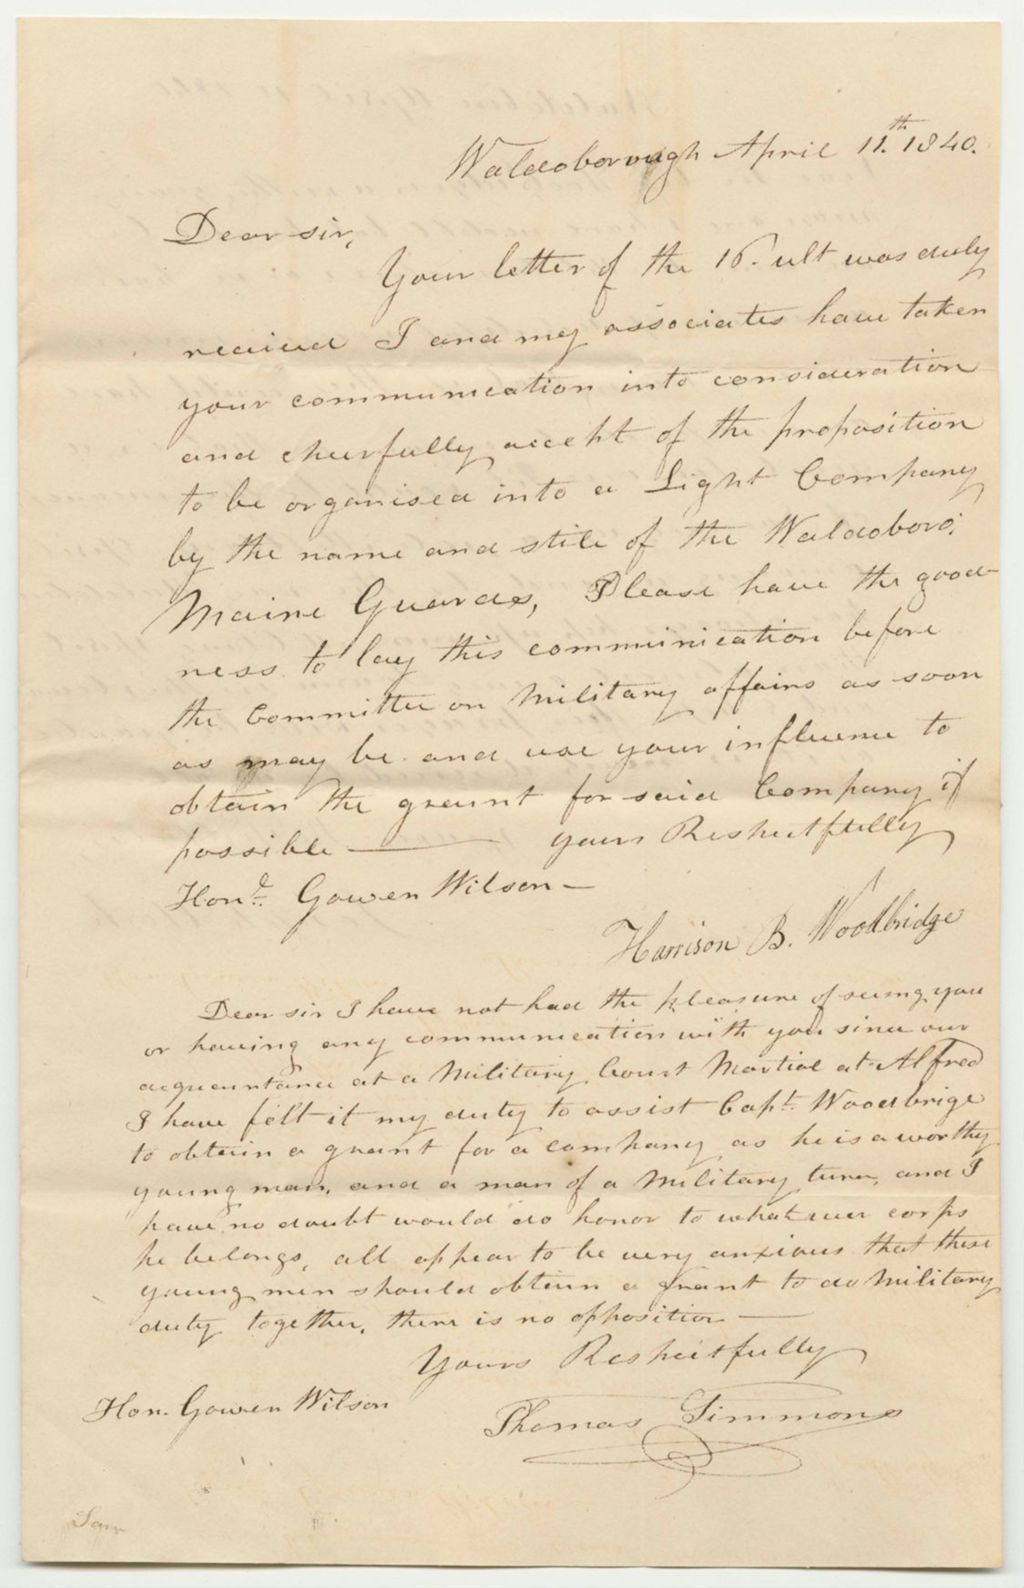 Waldoborough April 11.th 1840.
Dear sir,
Your letter of the 16. ult was duly
received I and my associates have taken
your communication into consideration
and cheerfully accept of the proposition
to be organised into a Light Company
by the name and stile of the Waldoboro'
Maine Guards, Please have the good-
ness to lay this communication before
the Committee on Military affairs as soon
as may be and use your influence to
obtain the graunt for said Company if
possible — yours Respectfully
Hon.e Gowen Wilson —
Harrison B. Woodbridge
Dear sir I have not had the pleasure of seeing you
or having any communication with you since our
acquaintance at a Military Court Martial at Alfred
I have felt it my duty to assist Capt. Woodbrige
to obtain a graunt for a company as he is a worthy
young man, and a man of a Military turn, and I
have no doubt would do honor to whatever corps
he belongs, all appear to be very anxious that these
young men should obtain a grant to do Military
duty together, there is no opposition —
Yours Respectfully
Hon. Gowen Wilson
Thomas Simmons